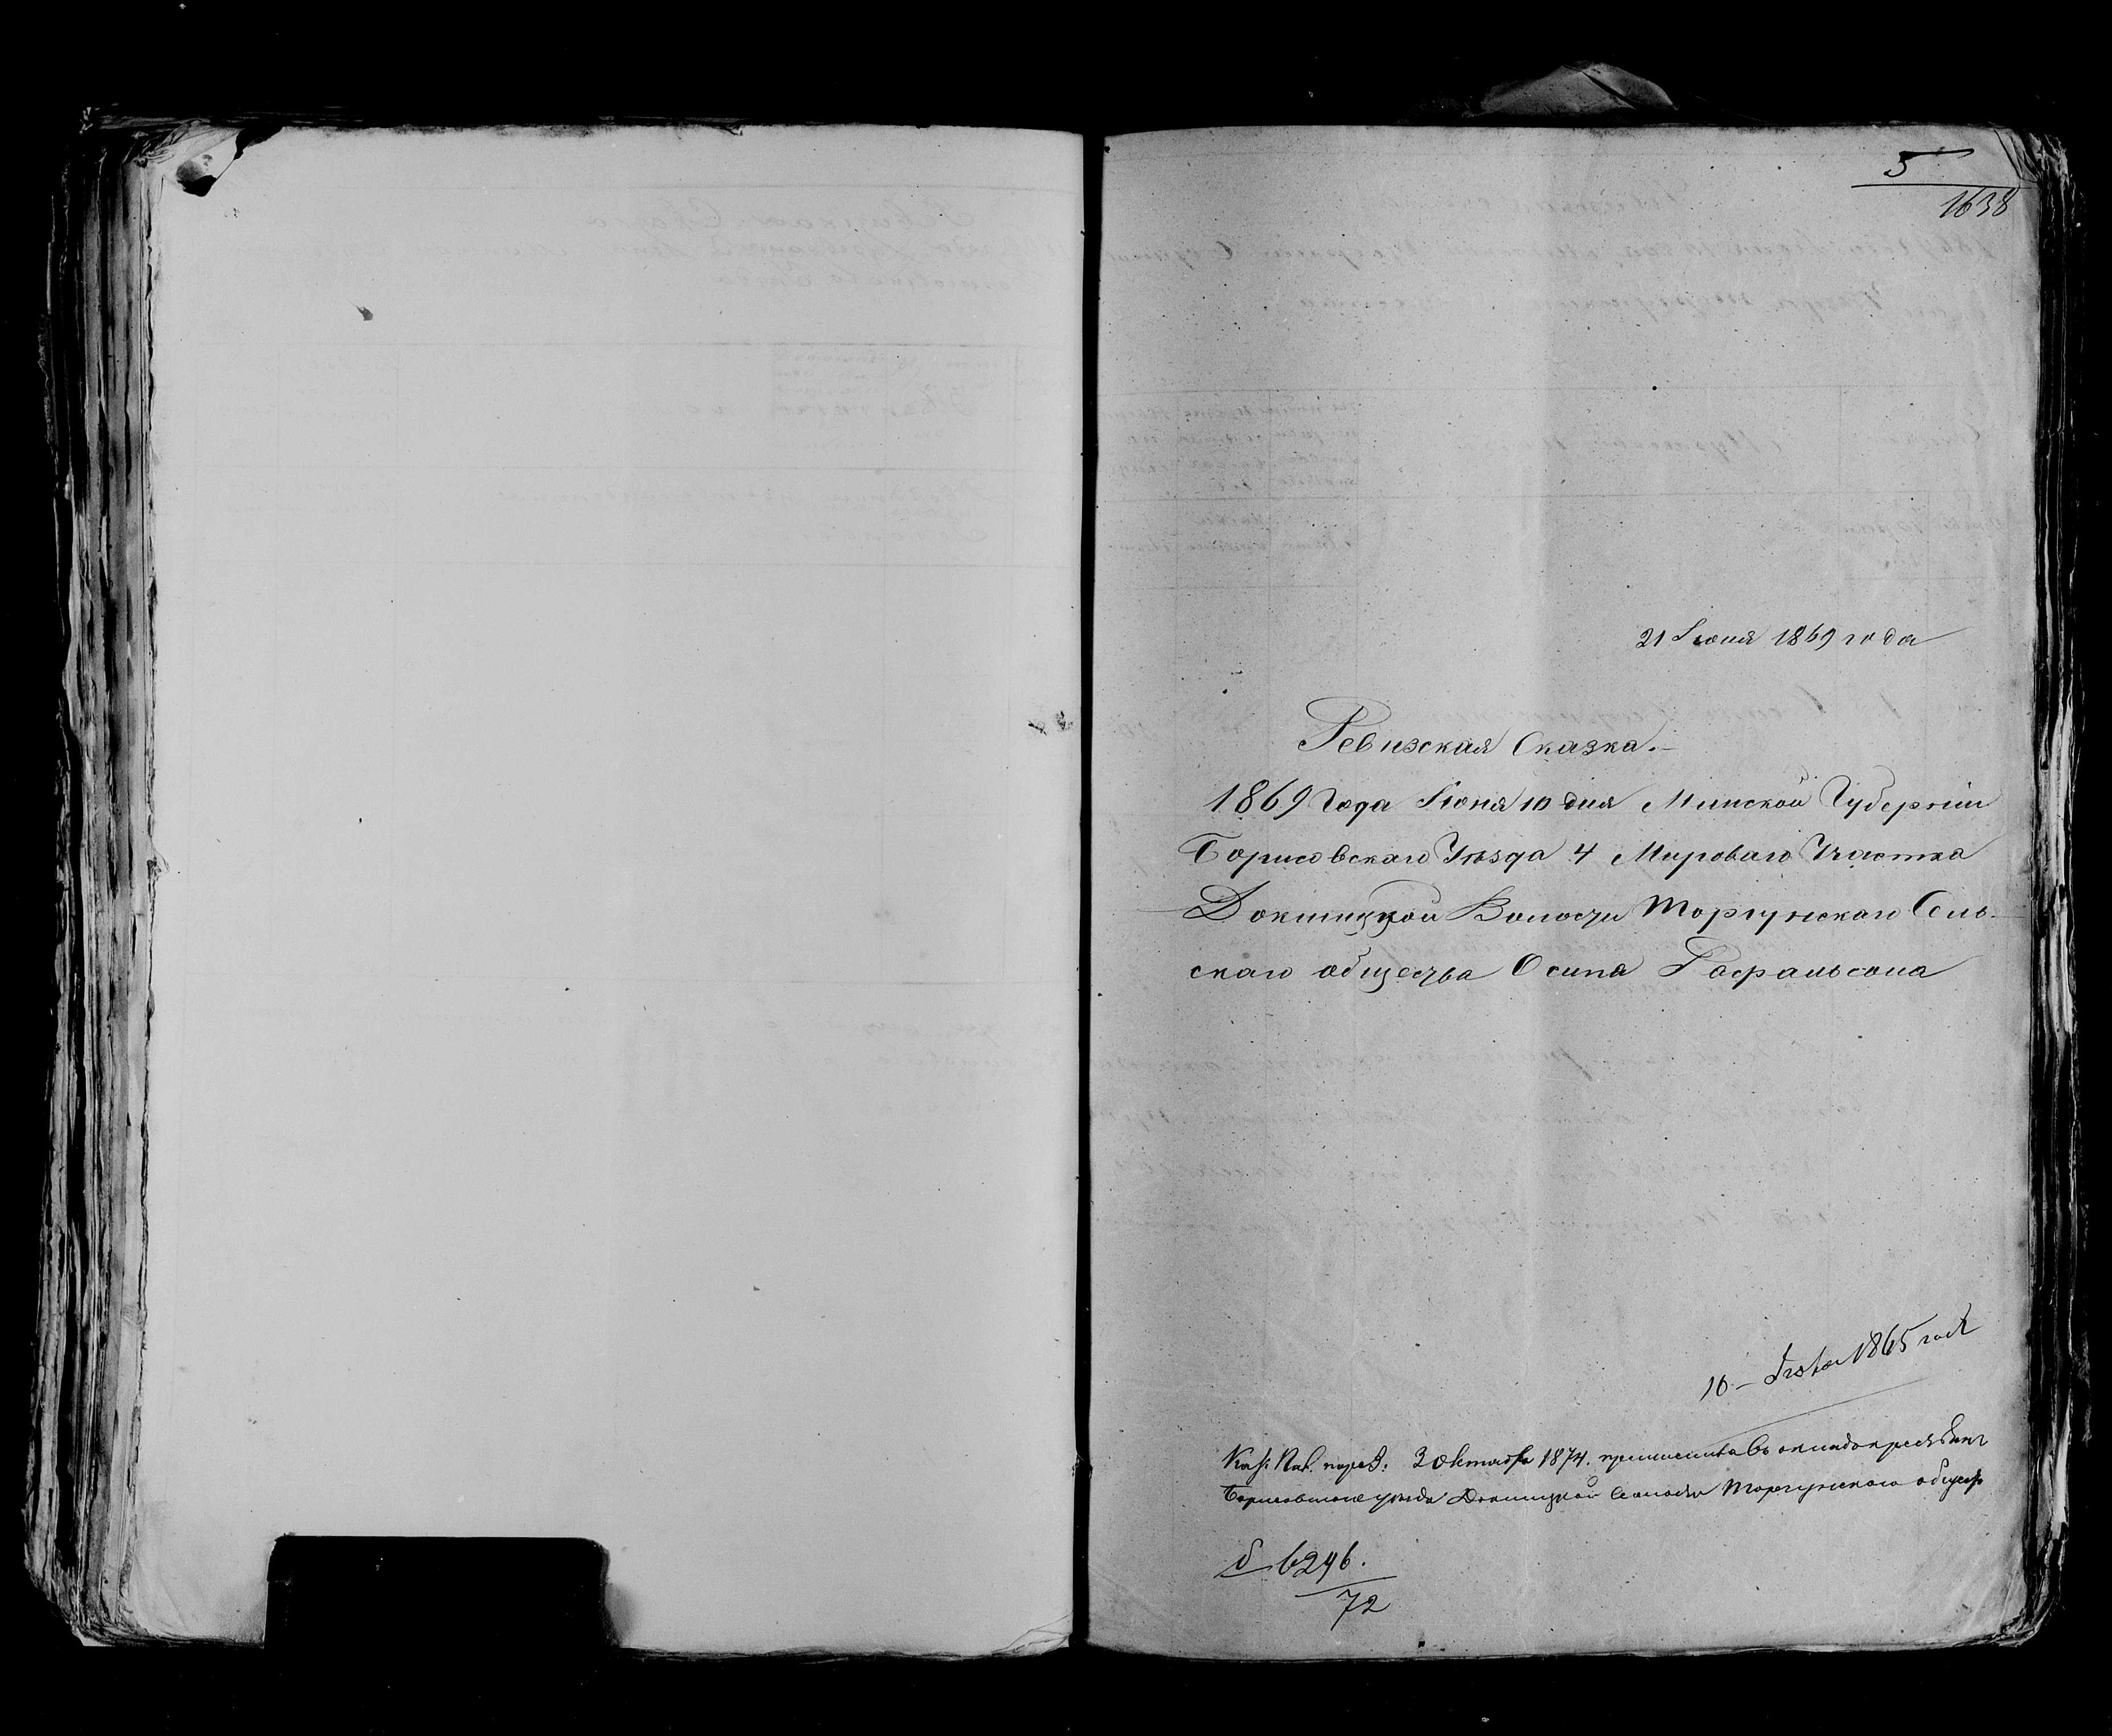 5
1638
21 Іюня 1869 года
Ревизская Сказка.
1869 Года Іюня 10 дня Минской Губерніи
Борисовскаго Уѣзда 4 Мироваго Участка
Докшицкой Волости Торгунскаго Сель-
скаго общества Осипа Рафальсона
10 1865 года
3 Октября 1874. въ окладъ крестьянъ
Борисовскаго уѣзда Докшицкой волости Торгунскаго общес
6246.
72